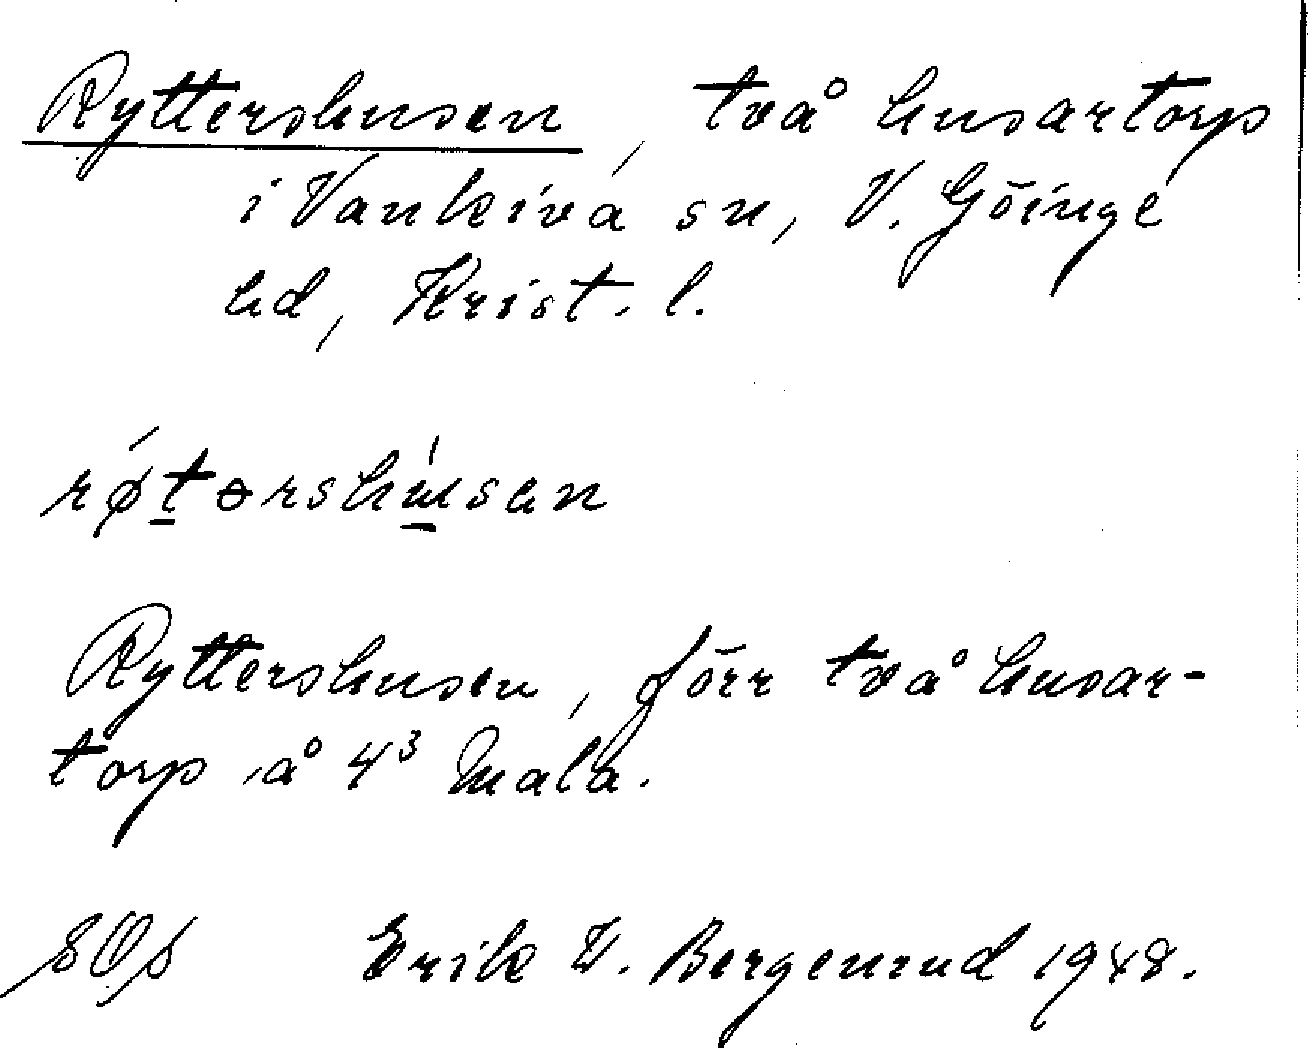 Ryttershusen, två husartorp
i Vankiva sn, V. Göinge
hd, Krist. l.
Ryttershusen, förr två husar-
torp å 4³ Mala.
Erik W. Bergenrud 1948.